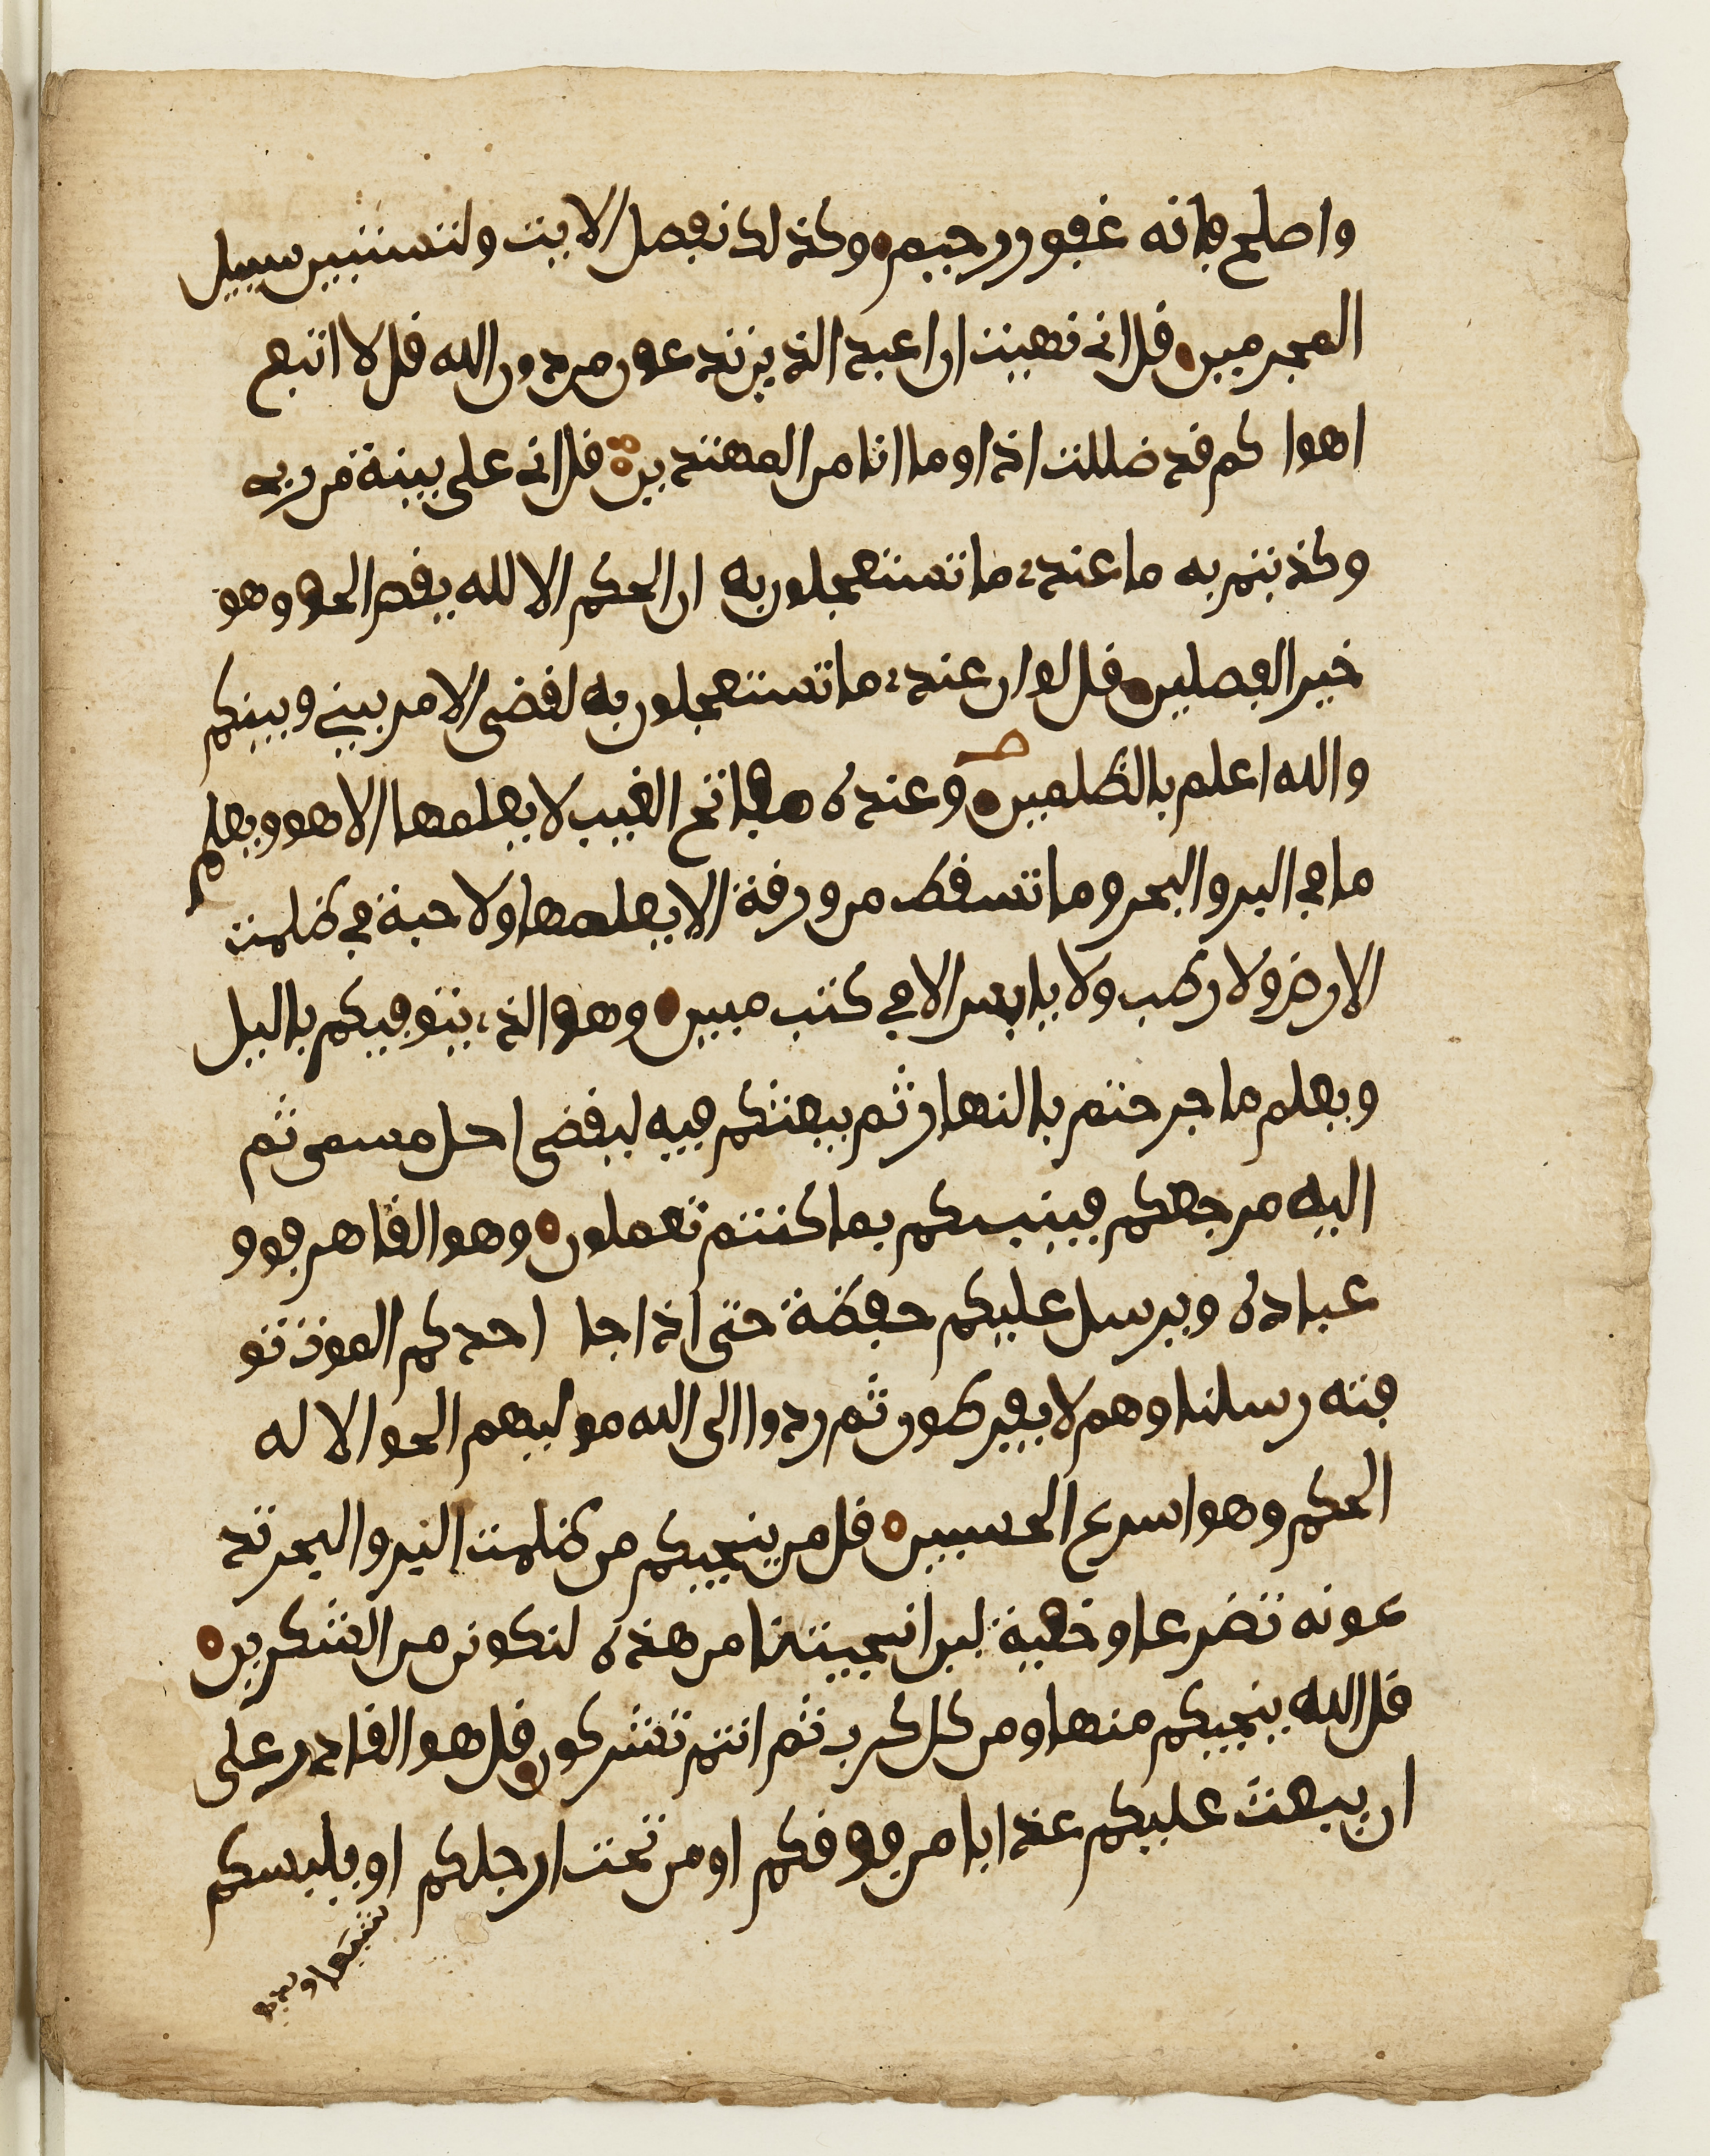 واصلح فانه غفور رحيم وكذلك نفصل الايت ولتستبين سبيل
المجرمين قل انى نهيت ان اعبد الذين تدعون من دون الله قل لا اتبع
اهوا كم قد ضللت اذا وما انا من المهتدين قل انى على بينة من ربى
وكذبتم به ما عندى ما تستعجلون به ان الحكم الا لله يقص الحق وهو
خير الفصلين قل لو ان عندى ما تستعجلون به لقضى الامر بينى وبينكم
والله اعلم بالظلمين وعنده مفاتح الغيب لا يعلمها الا هو ويعلم
ما فى البر والبحر وما تسقط من ورقة الا يعلمها ولا حبة فى ظلمت
الارض ولا رطب ولا يابس الا فى كتب مبين وهو الذى يتوفيكم باليل
ويعلم ما جرحتم بالنهار ثم يبعثكم فيه ليقضى اجل مسمى ثم
اليه مرجعكم فينبيكم بما كنتم تعملون وهو القاهر فوق
عباده ويرسل عليكم حفظة حتى اذا جا احدكم الموت تو
فته رسلنا وهم لا يفرطون ثم ردوا الى الله موليهم الحق الا له
الحكم وهو اسرع الحسبين قل من ينجيكم من ظلمت البر والبحر تد
عونه تضرعا وخفية لين انجيتنا من هذه لنكونن من الشكرين
قل الله ينجيكم منها ومن كل كرب ثم انتم تشركون قل هو القادر على
ان يبعث عليكم عذابا من فوقكم او من تحت ارجلكم او يلبسكم
شيعا ويذيق